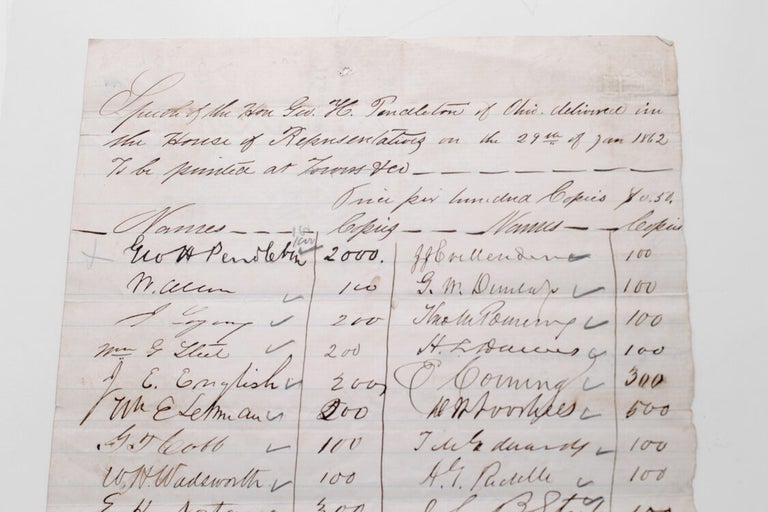 Speech of the Hon Geo. H. Pendleton of Ohio delivered in
the House of Representatives on the 29th of Jan 1862
To be printed at Towers & Co
Price per hundred Copies $0.50
Names Copies Names Copies
Geo H Pendleton 2000. J J Crittenden 100
W. Allen 100 G. W. Dunlap 100
200 100
Wm G Steele 200 H. L. Dawes 100
J E. English 200 E Corning 300
Wm E Lehman 200 D W Voorhees 500
G T Cobb 100 T M Edwards 100
W H Wadsworth 100 A. G. Riddle 100
E H Norton 200